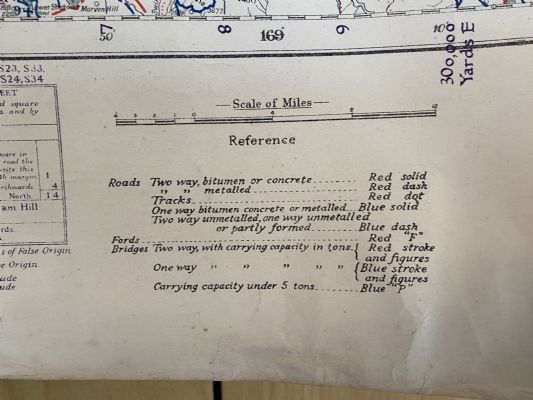 Morven Hill
7
50'
8
169°
9
10
300,000
Yards E
S23, S33,
S24, S34
EET
d square
s and by
uare in
read the
site this
th margin 1
rthwards 4
North 14
am Hill
rds.
s of False Origin.
se Origin.
ude
ude
Scale of Miles
4 3 2 1 0 4 8 12
Reference
Roads Two way, bitumen or concrete Red solid
" " metalled Red dash
Tracks Red dot
One way bitumen concrete or metalled Blue solid
Two way unmetalled, one way unmetalled
or partly formed Blue dash
Fords Red "F"
Bridges Two way, with carrying capacity in tons { Red stroke
and figures
One way " " " " { Blue stroke
and figures
Carrying capacity under 5 tons Blue "P"